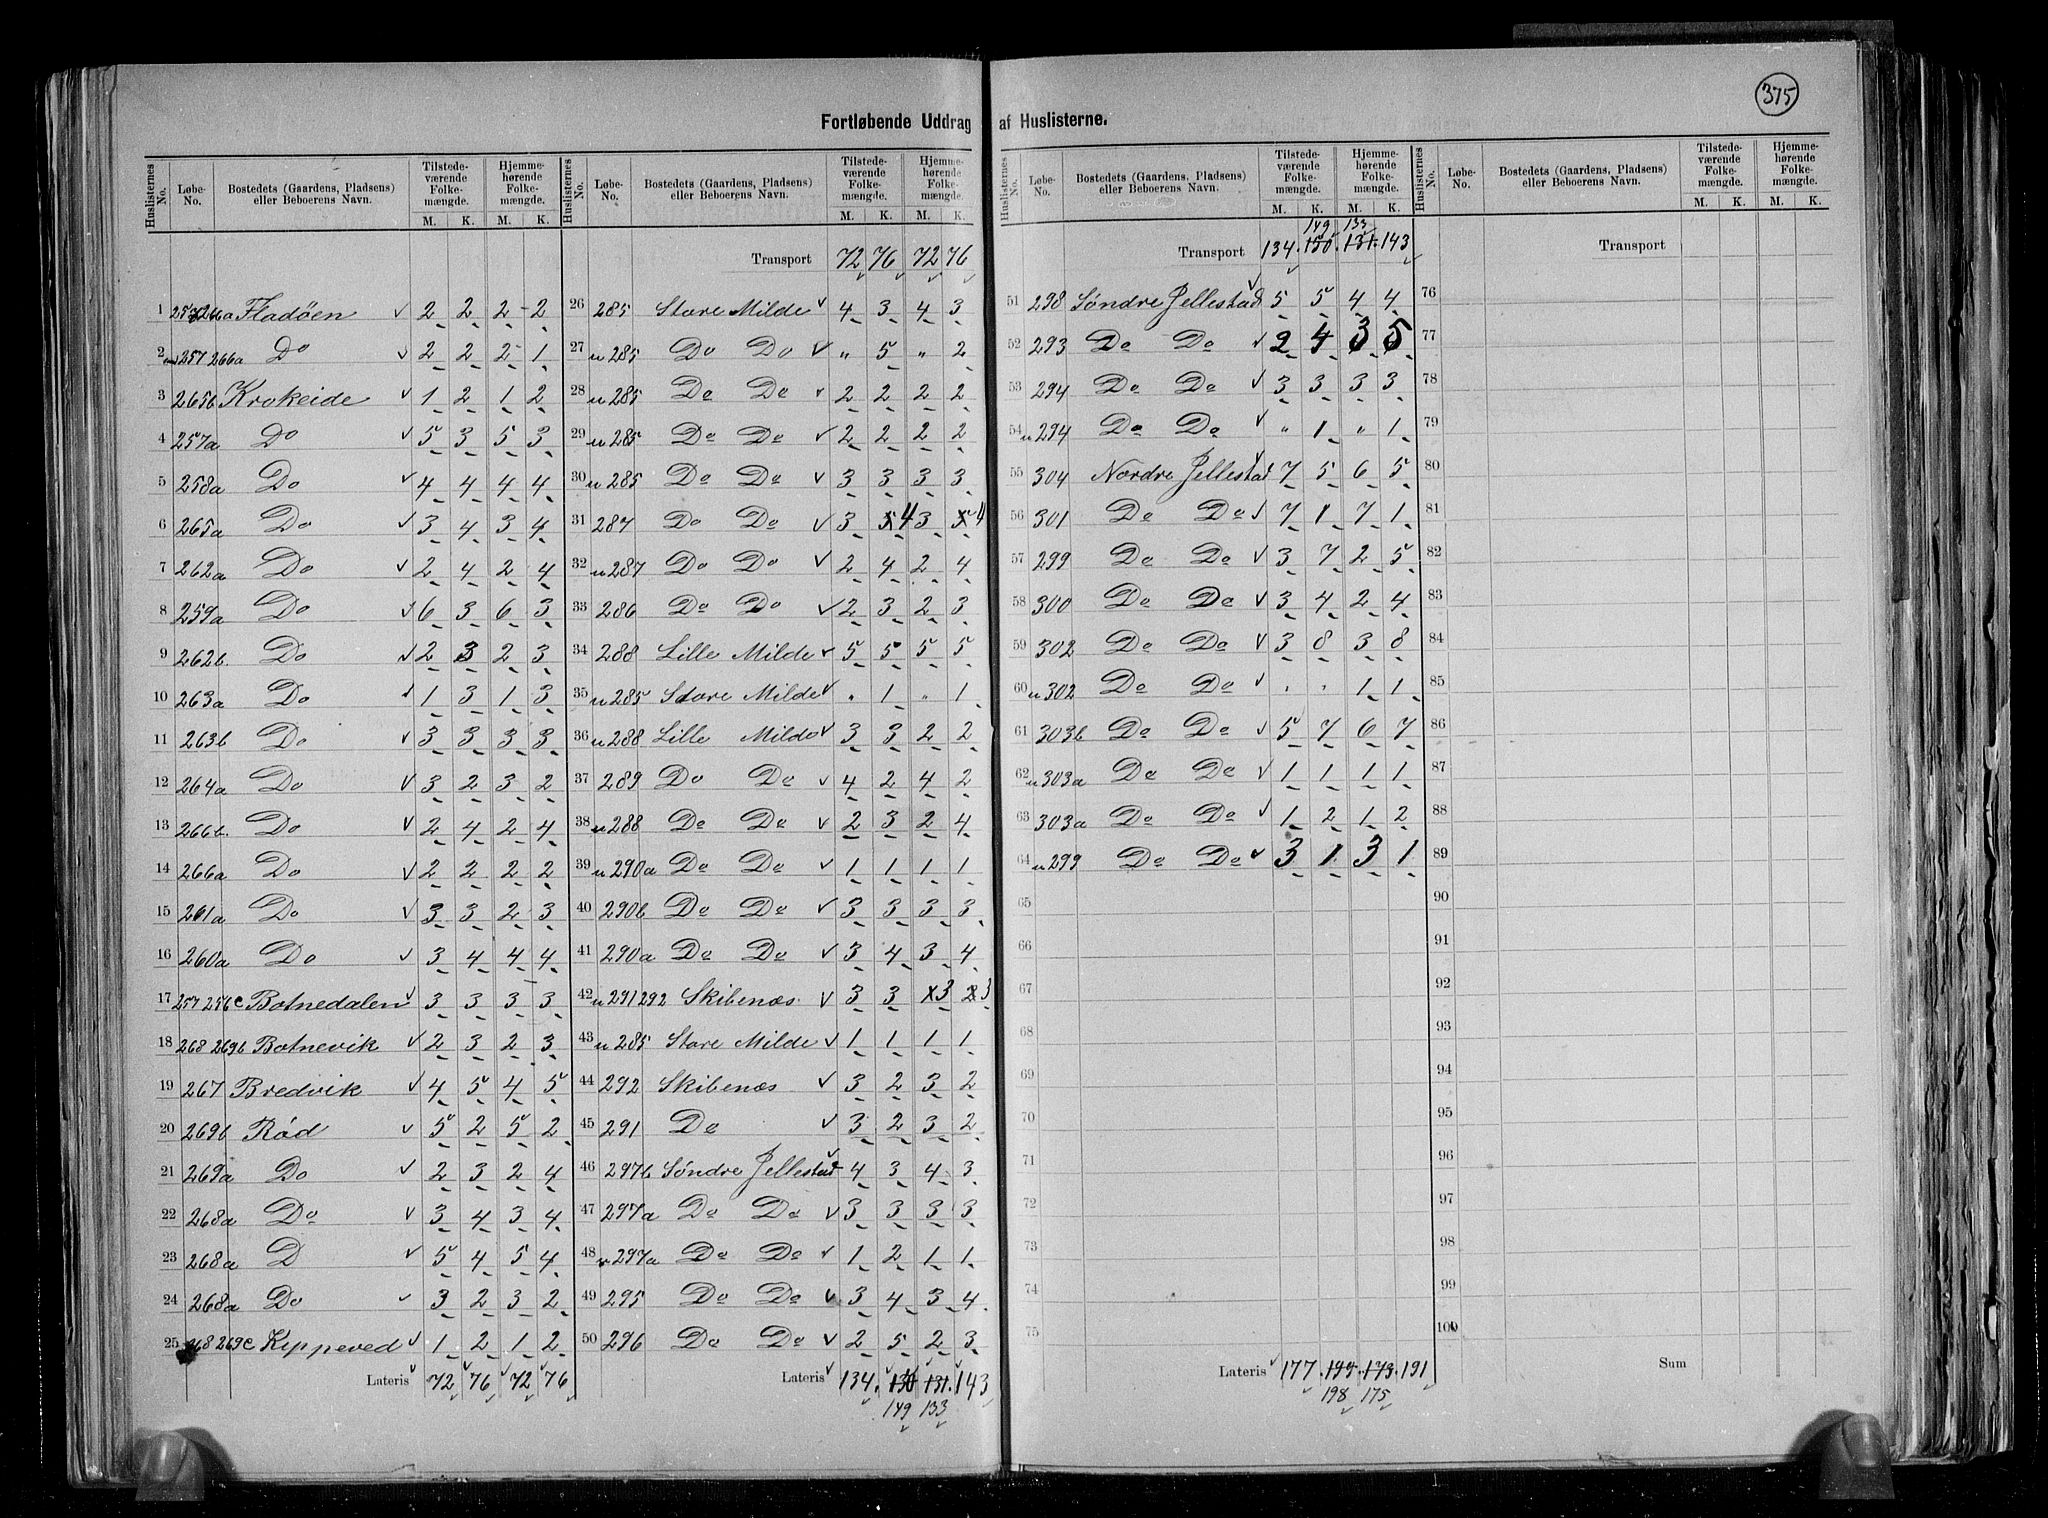 375
Fortløbende Uddrag af Huslisterne.
Huslisternes No. Løbe-No. Bostedets (Gaardens, Pladsens) eller Beboerens Navn. Tilstedeværende Folkemængde. M. K. Hjemmehørende Folkemængde. M. K.
1 266a Fladöen 2 2 2 2
2 257 266a Do 2 2 2 1
3 265b Krokeide 1 2 1 2
4 257a Do 5 3 5 3
5 258a Do 4 4 4 4
6 265a Do 3 4 3 4
7 262a Do 2 4 2 4
8 259a Do 6 3 6 3
9 262b. Do 2 3 2 3
10 263a Do 1 3 1 3
11 263b Do 3 3 3 3
12 264a Do 3 2 3 2
13 266b. Do 2 4 2 4
14 266a Do 2 2 2 2
15 261a Do 3 3 2 3
16 260a Do 3 4 4 4
17 257 256c Botnedalen 3 3 3 3
18 268 269b Botnevik 2 3 2 3
19 267 Bredvik 4 5 4 5
20 269b Röd 5 2 5 2
21 269a Do 2 3 2 4
22 268a Do 3 4 3 4
23 268a D 5 4 5 4
24 268a Do 3 2 3 2
25 268 269c Kippeved 1 2 1 2
Lateris 72 76 72 76
Huslisternes No. Løbe-No. Bostedets (Gaardens, Pladsens) eller Beboerens Navn. Tilstedeværende Folkemængde. M. K. Hjemmehørende Folkemængde. M. K.
Transport 72 76 72 76
26 285 Store Milde 4 3 4 3
27 u 285 Do Do " 5 " 2
28 u 285 Do Do 2 2 2 2
29 u 285 Do Do 2 2 2 2
30 u 285 Do Do 3 3 3 3
31 287 Do Do 3 5 4 3 5 4
32 u 287 Do Do 2 4 2 4
33 286 Do Do 2 3 2 3
34 288 Lille Milde 5 5 5 5
35 u 285 Store Milde " 1 " 1
36 u 288 Lille Milde 3 3 2 2
37 289 Do Do 4 2 4 2
38 u 288 Do Do 2 3 2 4
39 u 290a Do Do 1 1 1 1
40 290b Do Do 3 3 3 3
41 290a Do Do 3 4 3 4
42 u 291 292 Skibenæs 3 3 3 2 3
43 u 285 Store Milde 1 1 1 1
44 292 Skibenæs 3 2 3 2
45 291 Do 3 2 3 2
46 297b Söndre Jellestad 4 3 4 3
47 297a Do Do 3 3 3 3
48 u 297a Do Do 1 2 1 1
49 295 Do Do 3 4 3 4
50 296 Do Do 2 5 2 3
Lateris 134. 150 131. 143
149 133
Huslisternes No. Løbe-No. Bostedets (Gaardens, Pladsens) eller Beboerens Navn. Tilstedeværende Folkemængde. M. K. Hjemmehørende Folkemængde. M. K.
149 133
Transport 134. 150. 131. 143
51 298 Söndre Jellestad 5 5 4 4
52 293 Do Do 2 4 3 5
53 294 Do Do 3 3 3 3
54 u 294 Do Do " 1 " 1
55 304 Nordre Jellestad 7 5 6 5
56 301 Do Do 7 1 7 1
57 299 Do Do 3 7 2 5
58 300 Do Do 3 4 2 4
59 302 Do Do 3 8 3 8
60 u 302 Do Do " " 1 1
61 303b Do Do 5 7 6 7
62 u 303a Do Do 1 1 1 1
63 303a Do Do 1 2 1 2
64 u 299 Do Do 3 1 3 1
65
66
67
68
69
70
71
72
73
74
75
Lateris 177. 199. 173. 191
198 175
Huslisternes No. Løbe-No. Bostedets (Gaardens, Pladsens) eller Beboerens Navn. Tilstedeværende Folkemængde. M. K. Hjemmehørende Folkemængde. M. K.
Transport
76
77
78
79
80
81
82
83
84
85
86
87
88
89
90
91
92
93
94
95
96
97
98
99
100
Sum